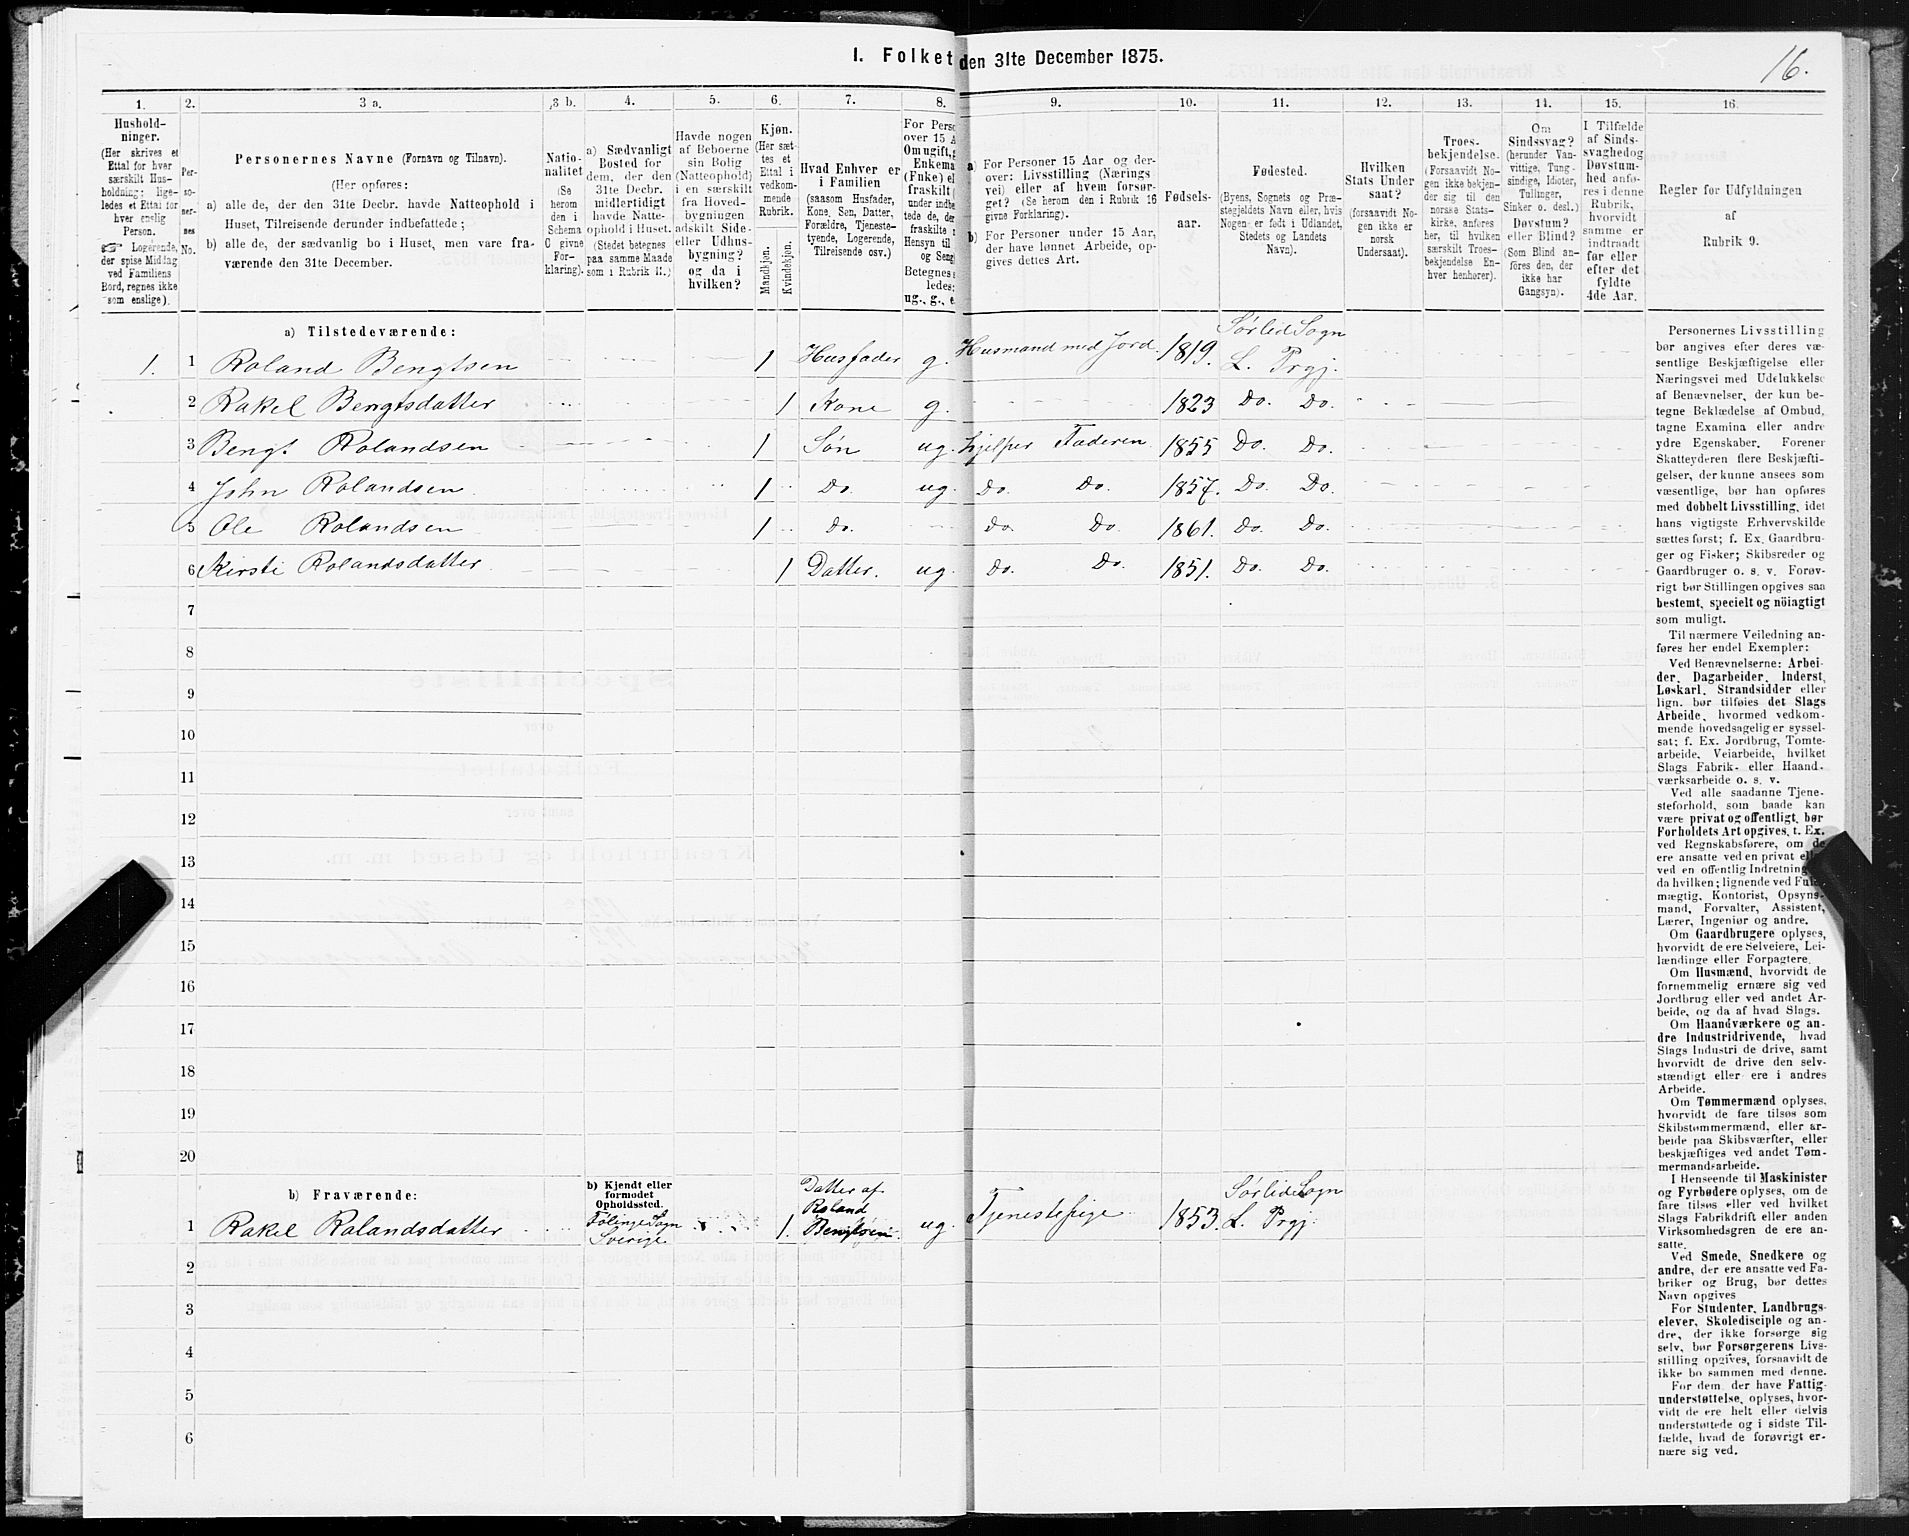 I. Folket den 31te December 1875.
16.
1. 2. 3 a. 3 b. 4. 5. 6. 7. 8. 9. 10. 11. 12. 13. 14. 15. 16.
Hushold-
ninger.
(Her skrives et
Ettal for hver
særskilt Hus-
holdning; lige-
ledes et Ettal for
hver enslig
Person.
☞ Logerende,
der spise Middag
ved Familiens
Bord, regnes ikke
som enslige).
Per-
so-
ner-
nes
No.
Personernes Navne (Fornavn og Tilnavn).
(Her opføres:
a) alle de, der den 31te Decbr. havde Natteophold i
Huset, Tilreisende derunder indbefattede;
b) alle de, der sædvanlig bo i Huset, men vare fra-
værende den 31te December.
Natio-
nalitet
(Se
herom
den i
Schema
C givne
For-
klaring).
a) Sædvanligt
Bosted for
dem, der den
31te Decbr.
midlertidigt
havde Natte-
ophold i Huset.
(Stedet betegnes
paa samme Maade
som i Rubrik 11.)
Havde nogen
af Beboerne
sin Bolig
(Natteophold)
i en særskilt
fra Hoved-
bygningen
adskilt Side-
eller Udhus-
bygning?
og da i
hvilken?
Kjøn.
(Her sæt-
tes et
Ettal i
vedkom-
mende
Rubrik.
Mandkjøn.
Kvindekjøn.
Hvad Enhver er
i Familien
(saasom Husfader,
Kone, Søn, Datter,
Forældre, Tjeneste-
tyende, Logerende,
Tilreisende osv.)
For Pers
over 15 A
Om ugift, g
Enkema
(Fuke) el
fraskilt
under indbe
tede de, der
fraskilte
Hensyn til
og Seng
Betegnes
ledes:
ug., g., e.
a) For Personer 15 Aar og der-
over: Livsstilling (Nærings-
vei) eller af hvem forsør-
get? (Se herom den i Rubrik 16
givne Forklaring).
b) For Personer under 15 Aar,
der have lønnet Arbeide, op-
gives dettes Art.
Fødsels-
aar.
Fødested.
(Byens, Sognets og Præ-
stegjeldets Navn eller, hvis
Nogen er født i Udlandet,
Stedets og Landets
Navn).
Hvilken
Stats Under
saat?
(forsaavidt No-
gen ikke er
norsk
Undersaat).
Troes-
bekjendelse.
(Forsaavidt No-
gen ikke bekjen-
der sig til den
norske Stats-
kirke, anføres
her, til hvilken
særskilt Troes-
bekjendelse En-
hver henhører).
Om
Sindssvag?
(herunder Van-
vittige, Tung-
sindige, Idioter,
Tullinger,
Sinker o. desl.)
Døvstum?
eller Blind?
(Som Blind an-
føres den, der
ikke har
Gangsyn).
I Tilfælde
af Sinds-
svaghed og
Døvstum-
hed anfø-
res i denne
Rubrik,
hvorvidt
samme er
indtraadt
før eller
efter det
fyldte
4de Aar.
Regler for Udfyldningen
af
Rubrik 9.
a) Tilstedeværende:
Sørlid Sogn
1. 1 Roland Bengtsen 1 Husfader g. Husmand med Jord. 1819. L. Prgj.
2 Rakel Bengtsdatter 1 Kone g. 1823 Do. Do.
3 Bengt Rolandsen 1 Søn ug. hjelper Faderen 1855 Do. Do.
4 John Rolandsen 1 Do. ug. Do. Do. 1857. Do. Do.
5 Ole Rolandsen 1 Do. Do. Do. 1861. Do. Do.
6 Kirsti Rolandsdatter 1 Datter. ug. Do. Do. 1851. Do. Do.
7
8
9
10
11
12
13
14
15
16
17
18
19
20
b) Fraværende:
b) Kjendt eller
formodet
Opholdssted.
Datter af
Roland
Bengtsen.
Sørlid Sogn
1 Rakel Rolandsdatter Følinge Sogn 1. ug. Tjenestepige 1853. L. Prgj.
Sverige
2
3
4
5
6
Personernes Livsstilling
bør angives efter deres væ-
sentlige Beskjæftigelse eller
Næringsvei med Udelukkelse
af Benævnelser, der kun be-
tegne Beklædelse af Ombud,
tagne Examina eller andre
ydre Egenskaber. Forener
Skatteyderen flere Beskjæfti-
gelser, der kunne ansees som
væsentlige, bør han opføres
med dobbelt Livsstilling, idet
hans vigtigste Erhvervskilde
sættes først; f. Ex. Gaardbru-
ger og Fisker; Skibsreder og
Gaardbruger o. s. v. Forøv-
rigt bør Stillingen opgives saa
bestemt, specielt og nöiagtigt
som muligt.
Til nærmere Veiledning an-
føres her endel Exempler:
Ved Benævnelserne: Arbei-
der, Dagarbeider, Inderst,
Løskarl, Strandsidder eller
lign. bør tilføies det Slags
Arbeide, hvormed vedkom-
mende hovedsagelig er syssel-
sat; f. Ex. Jordbrug, Tomte-
arbeide, Veiarbeide, hvilket
Slags Fabrik- eller Haand-
værksarbeide o. s. v.
Ved alle saadanne Tjene-
steforhold, som baade kan
være privat og offentligt, bør
Forholdets Art opgives, t. Ex.
ved Regnskabsførere, om de
ere ansatte ved en privat eller
ved en offentlig Indretning
da hvilken; lignende ved Fuld-
mægtig, Kontorist, Opsyns-
mand, Forvalter, Assistent,
Lærer, Ingeniør og andre.
Om Gaardbrugere oplyses,
hvorvidt de ere Selveiere, Lei-
lændinge eller Forpagtere.
Om Husmænd, hvorvidt de
fornemmelig ernære sig ved
Jordbrug eller ved andet Ar-
beide, og da af hvad Slags.
Om Haandværkere og an-
dre Industridrivende, hvad
Slags Industri de drive, samt
hvorvidt de drive den selv-
stændigt eller ere i andres
Arbeide.
Om Tømmermænd oplyses,
hvorvidt de fare tilsøs som
Skibstømmermænd, eller ar-
beide paa Skibsværfter, eller
beskjæftiges ved andet Tøm-
mermandsarbeide.
I Henseende til Maskinister
og Fyrbødere oplyses, om de
fare tilsøs eller ved hvilket
Slags Fabrikdrift eller anden
Virksomhedsgren de ere an-
satte.
Ved Smede, Snedkere og
andre, der ere ansatte ved Fa-
briker og Brug, bør dettes
Navn opgives
For Studenter, Landbrugs-
elever, Skoledisciple og an-
dre, der ikke forsørge sig
selv, bør Forsørgerens Livs-
stilling opgives, forsaavidt de
ikke bo sammen med denne.
For dem, der have Fattig-
understøttelse, oplyses, hvor-
vidt de ere helt eller delvis
understøttede og i sidste Til-
fælde, hvad de forøvrigt er-
nære sig ved.